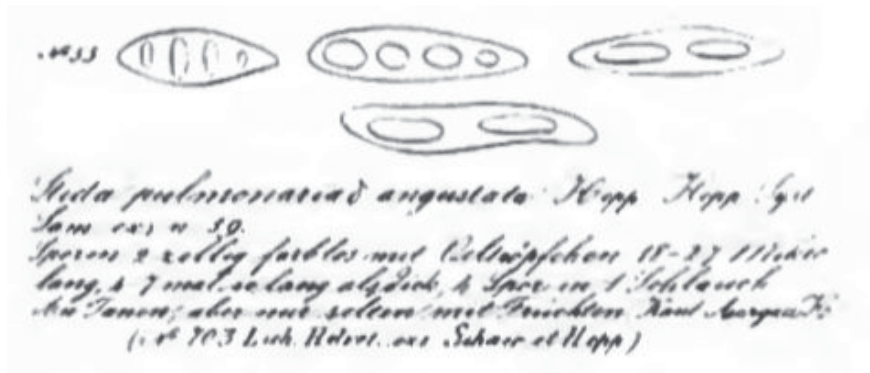 No 33
Sticta pulmonaria δ angustata Hepp Hepp Syst
Sam exs n 39.
Sporen 2 zellig farblos mit Oeltröpfchen 18-27 Mikro
lang, 4-7 mal so lang als dick, 4 Spor in 1 Schlauch
An Tannen, aber nur selten mit Früchten Kant Aargau
(No 703 Lich. Helvet. exs Schaer et Hepp)